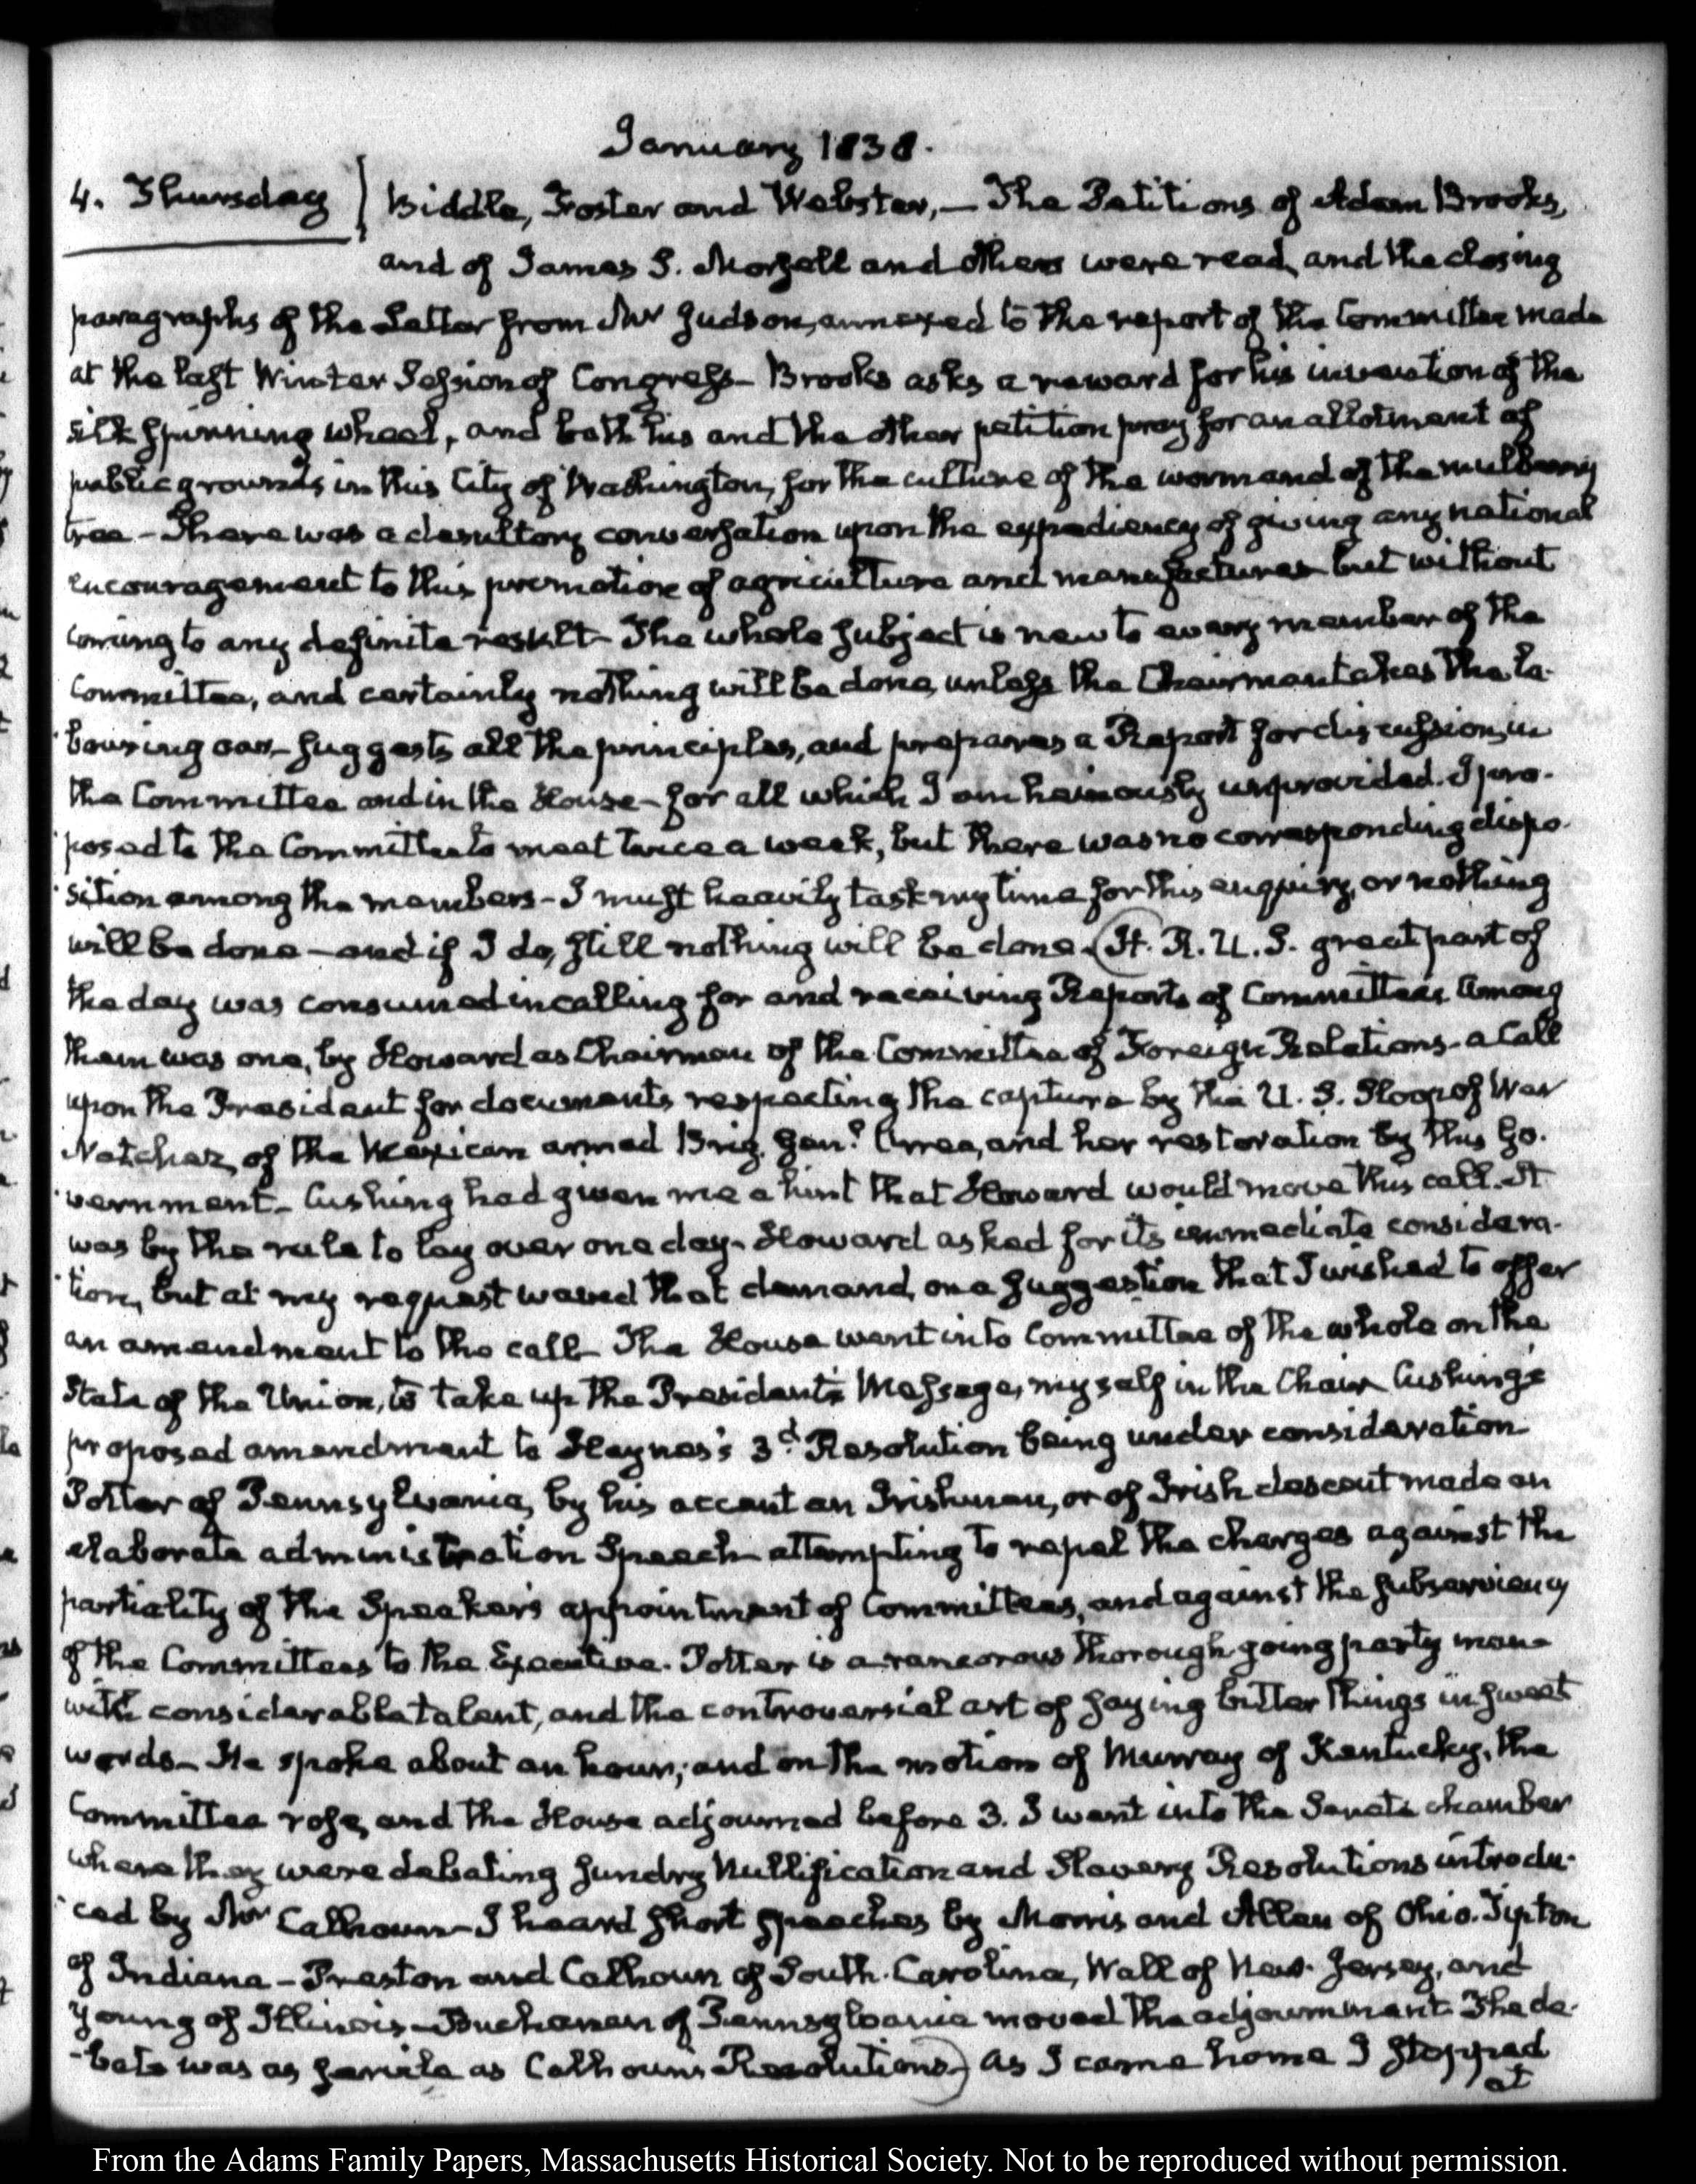 January 1838.
4. Thursday } Biddle, Foster and Webster,— The Petitions of Adam Brooks,
and of James S. and others were read, and the closing
paragraphs of the Letter from Mr Judson, annexed to the report of the Committee made
at the last Winter Session of Congress— Brooks asks a reward for his invention of the
silk spinning wheel, and both his and the other petition pray for an allotment of
public grounds in this City of Washington, for the culture of the worm and of the mulberry
tree— There was a desultory conversation upon the expediency of giving any national
encouragement to this promotion of agriculture and manufactures but without
coming to any definite result— The whole subject is new to every member of the
Committee, and certainly nothing will be done, unless the Chairman takes the la-
-bouring oar— suggests all the principles, and prepares a Report for discussion, in
the Committee and in the House— for all which I am heinously unprovided. I pro-
-posed to the Committee to meet twice a week, but there was no corresponding dispo-
-sition among the members— I must heavily task my time for this enquiry, or nothing
will be done— and if I do, still nothing will be done. (H. R. U. S. great part of
the day was consumed in calling for and receiving Reports of Committees. Among
them was one, by Howard as Chairman of the Committee of Foreign Relations— a Call
upon the President for documents respecting the capture by the U. S. Sloop of War
Natchez, of the Mexican armed Brig, Genl. Urrea, and her restoration by this Go-
-vernment— Cushing had given me a hint that Howard would move this call. It
was by the rule to lay over one day— Howard asked for its immediate considera-
-tion, but at my request waved that demand, on a suggestion that I wished to offer
an amendment to the call— The House went into Committee of the whole on the
State of the Union, to take up the President's Message, myself in the Chair— Cushing's
proposed amendment to Haynes's 3d. Resolution being under consideration—
Potter of Pennsylvania, by his accent an Irishman, or of Irish descent made an
elaborate administration Speech— attempting to repel the charges against the
partiality of the Speaker's appointment of Committees, and against the subserviency
of the Committees to the Executive. Potter is a rancorous thorough going party man—
with considerable talent, and the controversial art of saying bitter things in sweet
words— He spoke about an hour; and on the motion of Murray of Kentucky, the
Committee rose, and the House adjourned before 3. I went into the Senate chamber
where they were debating sundry Nullification and Slavery Resolutions introdu-
-ced by Mr Calhoun— I heard short speeches by Morris and Allen of Ohio. Tipton
of Indiana— Preston and Calhoun of South-Carolina, Wall of New-Jersey, and
Young of Illinois— Buchanan of Pennsylvania moved the adjournment. The de-
-bate was as servile as Calhoun's Resolutions—) As I came home I stopped
at
From the Adams Family Papers, Massachusetts Historical Society. Not to be reproduced without permission.